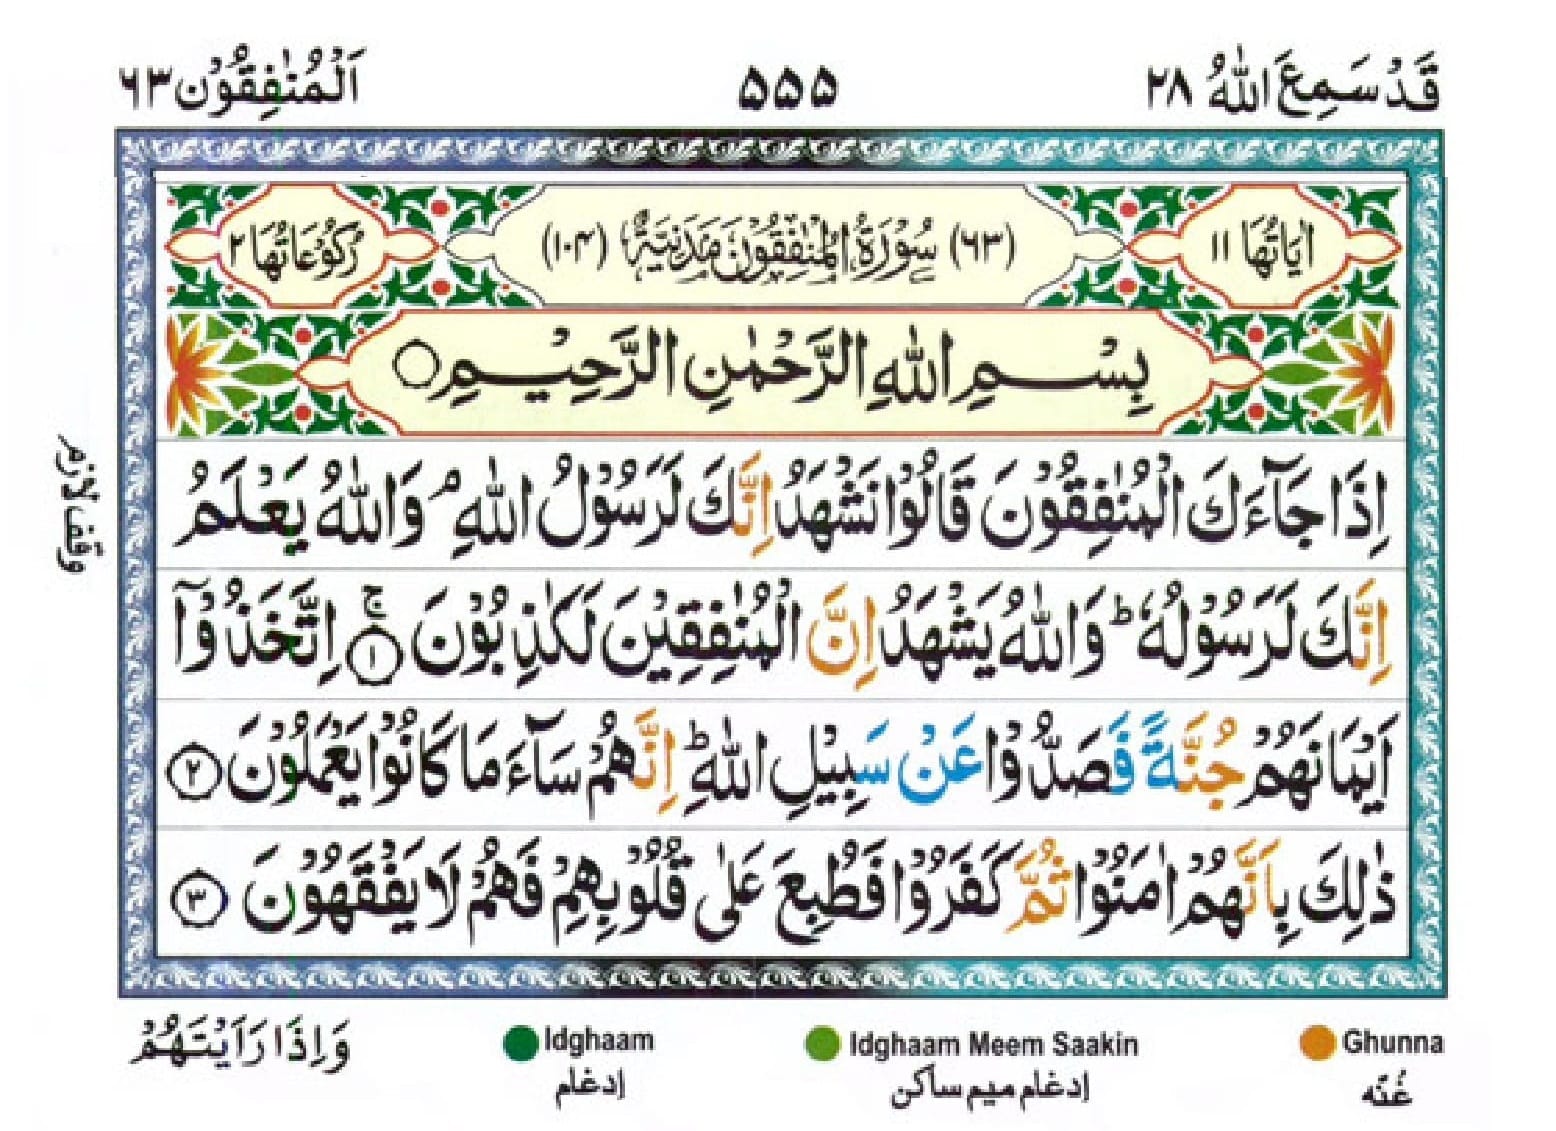 قَدۡ سَمِعَ اللّٰهُ ٢٨ ۵۵۵ اَلۡمُنٰفِقُوۡن ٦٣
اٰيَاتُهَا ١١ (٦٣) سُوۡرَةُ الۡمُنٰفِقُوۡنَ مَدَنِيَّةٌ (١٠۴) رُكُوۡعَاتُهَا ٢
بِسۡمِ اللّٰهِ الرَّحۡمٰنِ الرَّحِيۡمِ ○
اِذَا جَآءَكَ الۡمُنٰفِقُوۡنَ قَالُوۡا نَشۡهَدُ اِنَّكَ لَرَسُوۡلُ اللّٰهِ ۘ وَاللّٰهُ يَعۡلَمُ
وقف لازم
اِنَّكَ لَرَسُوۡلُهٗ ؕ وَاللّٰهُ يَشۡهَدُ اِنَّ الۡمُنٰفِقِيۡنَ لَكٰذِبُوۡنَ ۚ ① اِتَّخَذُوۡۤا
اَيۡمَانَهُمۡ جُنَّةً فَصَدُّوۡا عَنۡ سَبِيۡلِ اللّٰهِ ؕ اِنَّهُمۡ سَآءَ مَا كَانُوۡا يَعۡمَلُوۡنَ ②
ذٰلِكَ بِاَنَّهُمۡ اٰمَنُوۡا ثُمَّ كَفَرُوۡا فَطُبِعَ عَلٰى قُلُوۡبِهِمۡ فَهُمۡ لَا يَفۡقَهُوۡنَ ③
وَاِذَا رَاَيۡتَهُمۡ
Idghaam Idghaam Meem Saakin Ghunna
إدغام إدغام ميم ساكن غُنّه